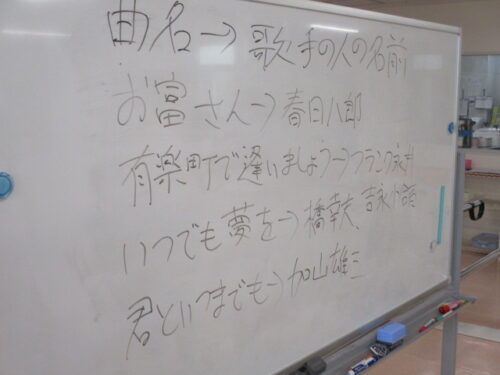 曲名→歌手の人の名前
お富さん→春日八郎
有楽町で逢いましょう→フランク永井
いつでも夢を→橋幸夫、吉永小百合
君といつまでも→加山雄三